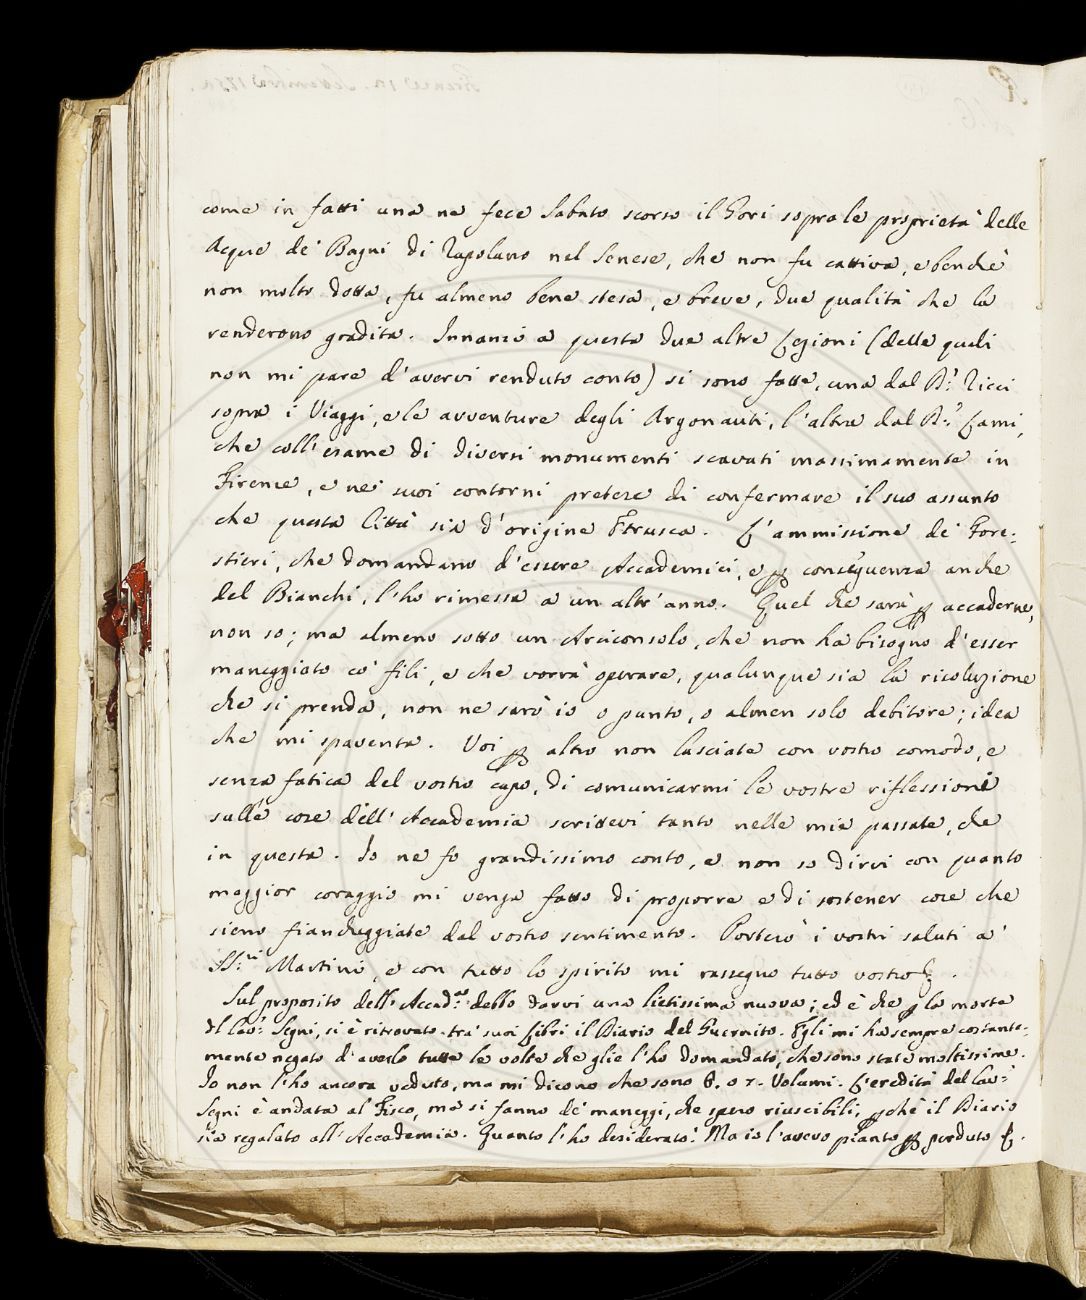 come in fatti una ne fece Sabato scorso il Gori sopra le proprietà delle
Acque de' Bagni di Rapolano nel Senese, che non fu cattiva, e benchè
non molto dotta, fu almeno bene stesa, e breve, due qualità che la
renderono gradita. Innanzi a questa due altre Lezioni (delle quali
non mi pare d'avervi renduto conto) si sono fatte, una dal D.r Ricci
sopra i Viaggi, e le avventure degli Argonauti, l'altra dal D.r Lami,
che coll'esame di diversi monumenti scavati massimamente in
Firenze, e ne' suoi contorni pretese di confermare il suo assunto
che questa Città sia d'origine Etrusca. L'ammissione de' Fore-
stieri, che domandano d'essere Accademici, e p conseguenza anche
del Bianchi, l'ho rimessa a un altr'anno. Quel che sarà p accaderne,
non so; ma almeno sotto un Arciconsolo, che non ha bisogno d'esser
maneggiato co' fili, e che vorrà operare, qualunque sia la risoluzione
che si prenda, non ne sarò io o punto, o almen solo debitore; idea
che mi spaventa. Voi p altro non lasciate con vostro comodo, e
senza fatica del vostro capo, di comunicarmi le vostre riflessioni
sulle cose dell'Accademia scrittevi tanto nelle mie passate, che
in questa. Io ne fo grandissimo conto, e non so dirvi con quanto
maggior coraggio mi venga fatto di proporre e di sostener cose che
sieno fiancheggiate dal vostro sentimento. Porterò i vostri saluti a'
SS.ri Martini, e con tutto lo spirito mi rassegno tutto vostro
Sul proposito dell'Accad.a debbo darvi una lietissima nuova; ed è che p la morte
del Cav.r Segni, si è ritrovato tra' suoi Libri il Diario del Guernito. Egli mi ha sempre costante-
mente negato d'averlo tutte le volte che glie l'ho domandato, che sono state moltissime.
Io non l'ho ancora veduto, ma mi dicono che sono 6. o 7. Volumi. L'eredità del Cav.r
Segni è andata al Fisco, ma si fanno de' maneggi, che spero riuscibili, pchè il Diario
sia regalato all'Accademia. Quanto l'ho desiderato! Ma io l'avevo pianto p perduto